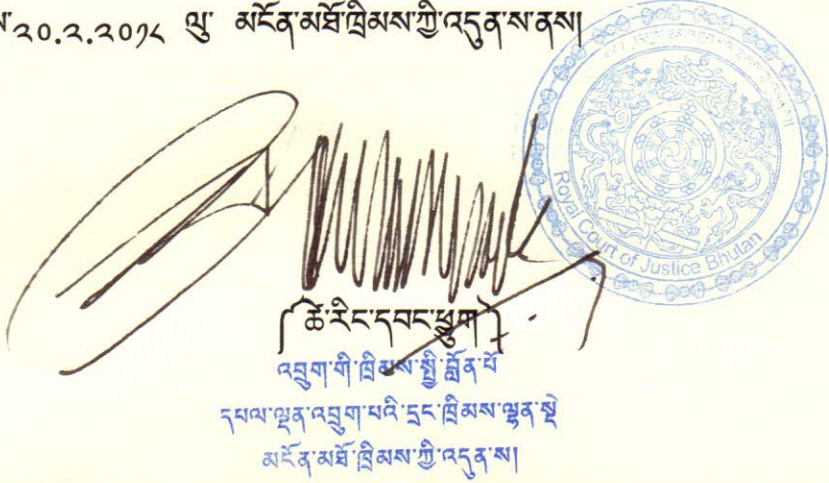 ༢༠.༢.༢༠༡༨ ལུ་ མངོན་མཐོ་ཁྲིམས་ཀྱི་འདུན་ས་ནས།
Royal Court of Justice Bhutan
༼ ཚེ་རིང་དབང་ཕྱུག ༽
འབྲུག་གི་ཁྲིམས་སྤྱི་བློན་པོ
དཔལ་ལྡན་འབྲུག་པའི་དྲང་ཁྲིམས་ལྷན་སྡེ
མངོན་མཐོ་ཁྲིམས་ཀྱི་འདུན་ས།